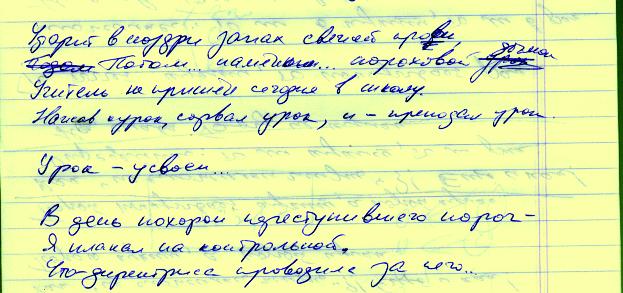 Ударит в ноздри запах свежей крови
Потом... пороховой
Учитель не пришёл сегодня в школу.
Нажав курок, сорвал урок, и – преподал урок.
Урок – усвоен...
В день похорон преступившего порог –
Я плакал на контрольной,
Что директриса проводила за него...